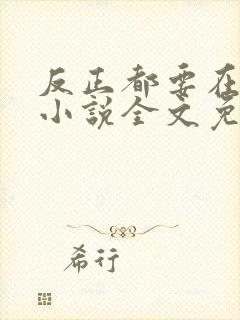 反正都要在
小说全文免
希行